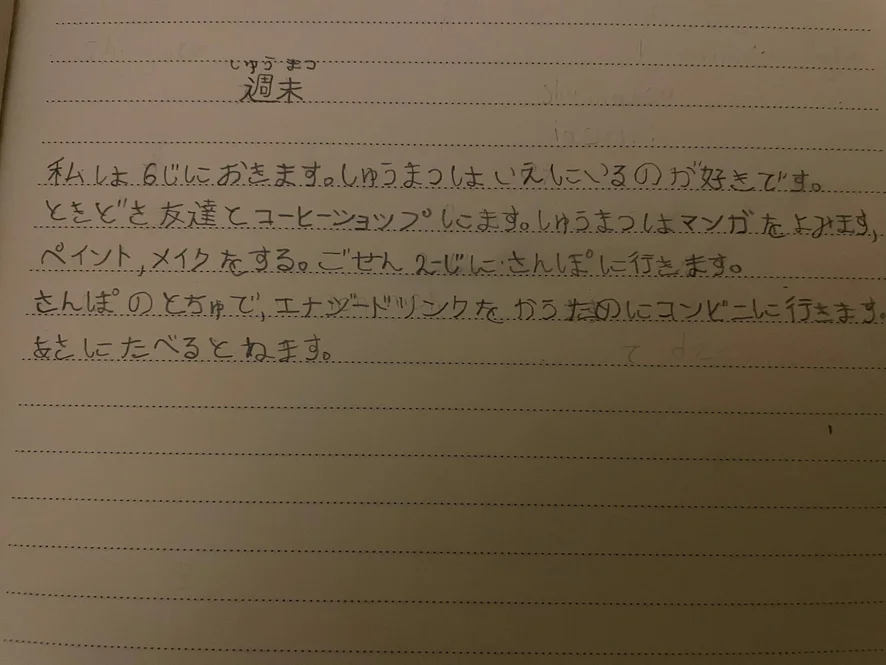 しゅうまつ
週末
私は6じにおきます。しゅうまつはいえにいるのが好きです。
ときどき友達とコーヒーショップにます。しゅうまつはマンガをよみます,
ペイント,メイクをする。ごせん2じにさんぽに行きます。
さんぽのとちゅで,エナジードリンクをかうためにコンビニに行きます。
あさにたべるとねます。